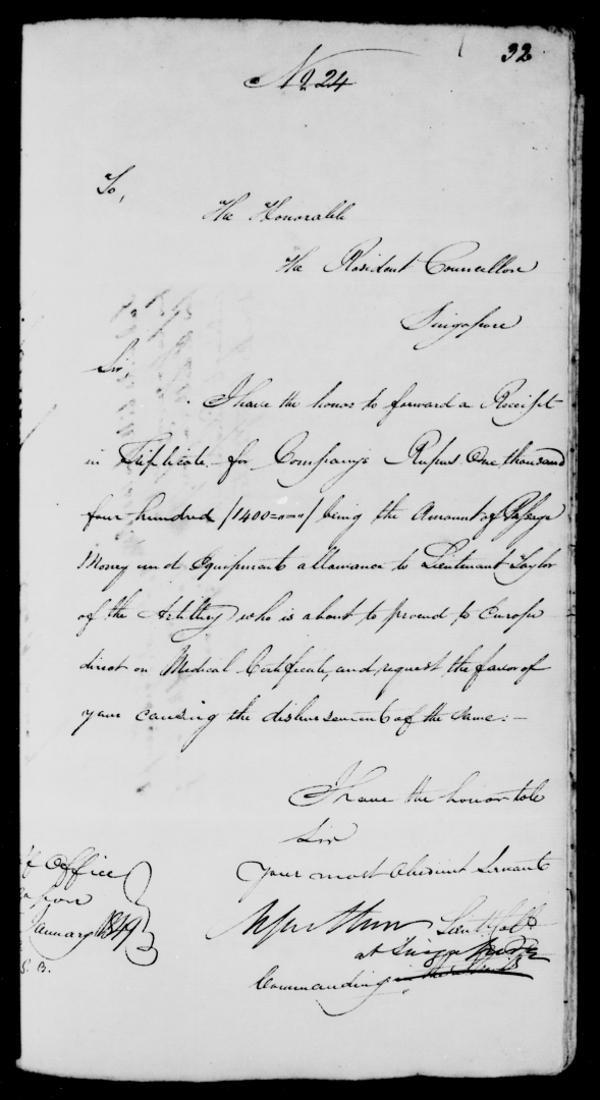 32
No 24
To,
The Honorable
The Resident Councillor
Singapore
Sir,
I have the honor to forward a Receipt
in Triplicate for Company's Rupees One thousand
four hundred /1400=〃=〃/ being the Amount of Passage
Money and Equipment allowance to Lieutenant Taylor
of the Artillery who is about to proceed to Europe
direct on Medical Certificate, and request the favor of
your causing the disbursement of the same:—
I have the honor to be
Sir
Your most Obedient Servant
Office
January 1849
S. B.
Lieut Coll
at
Commanding